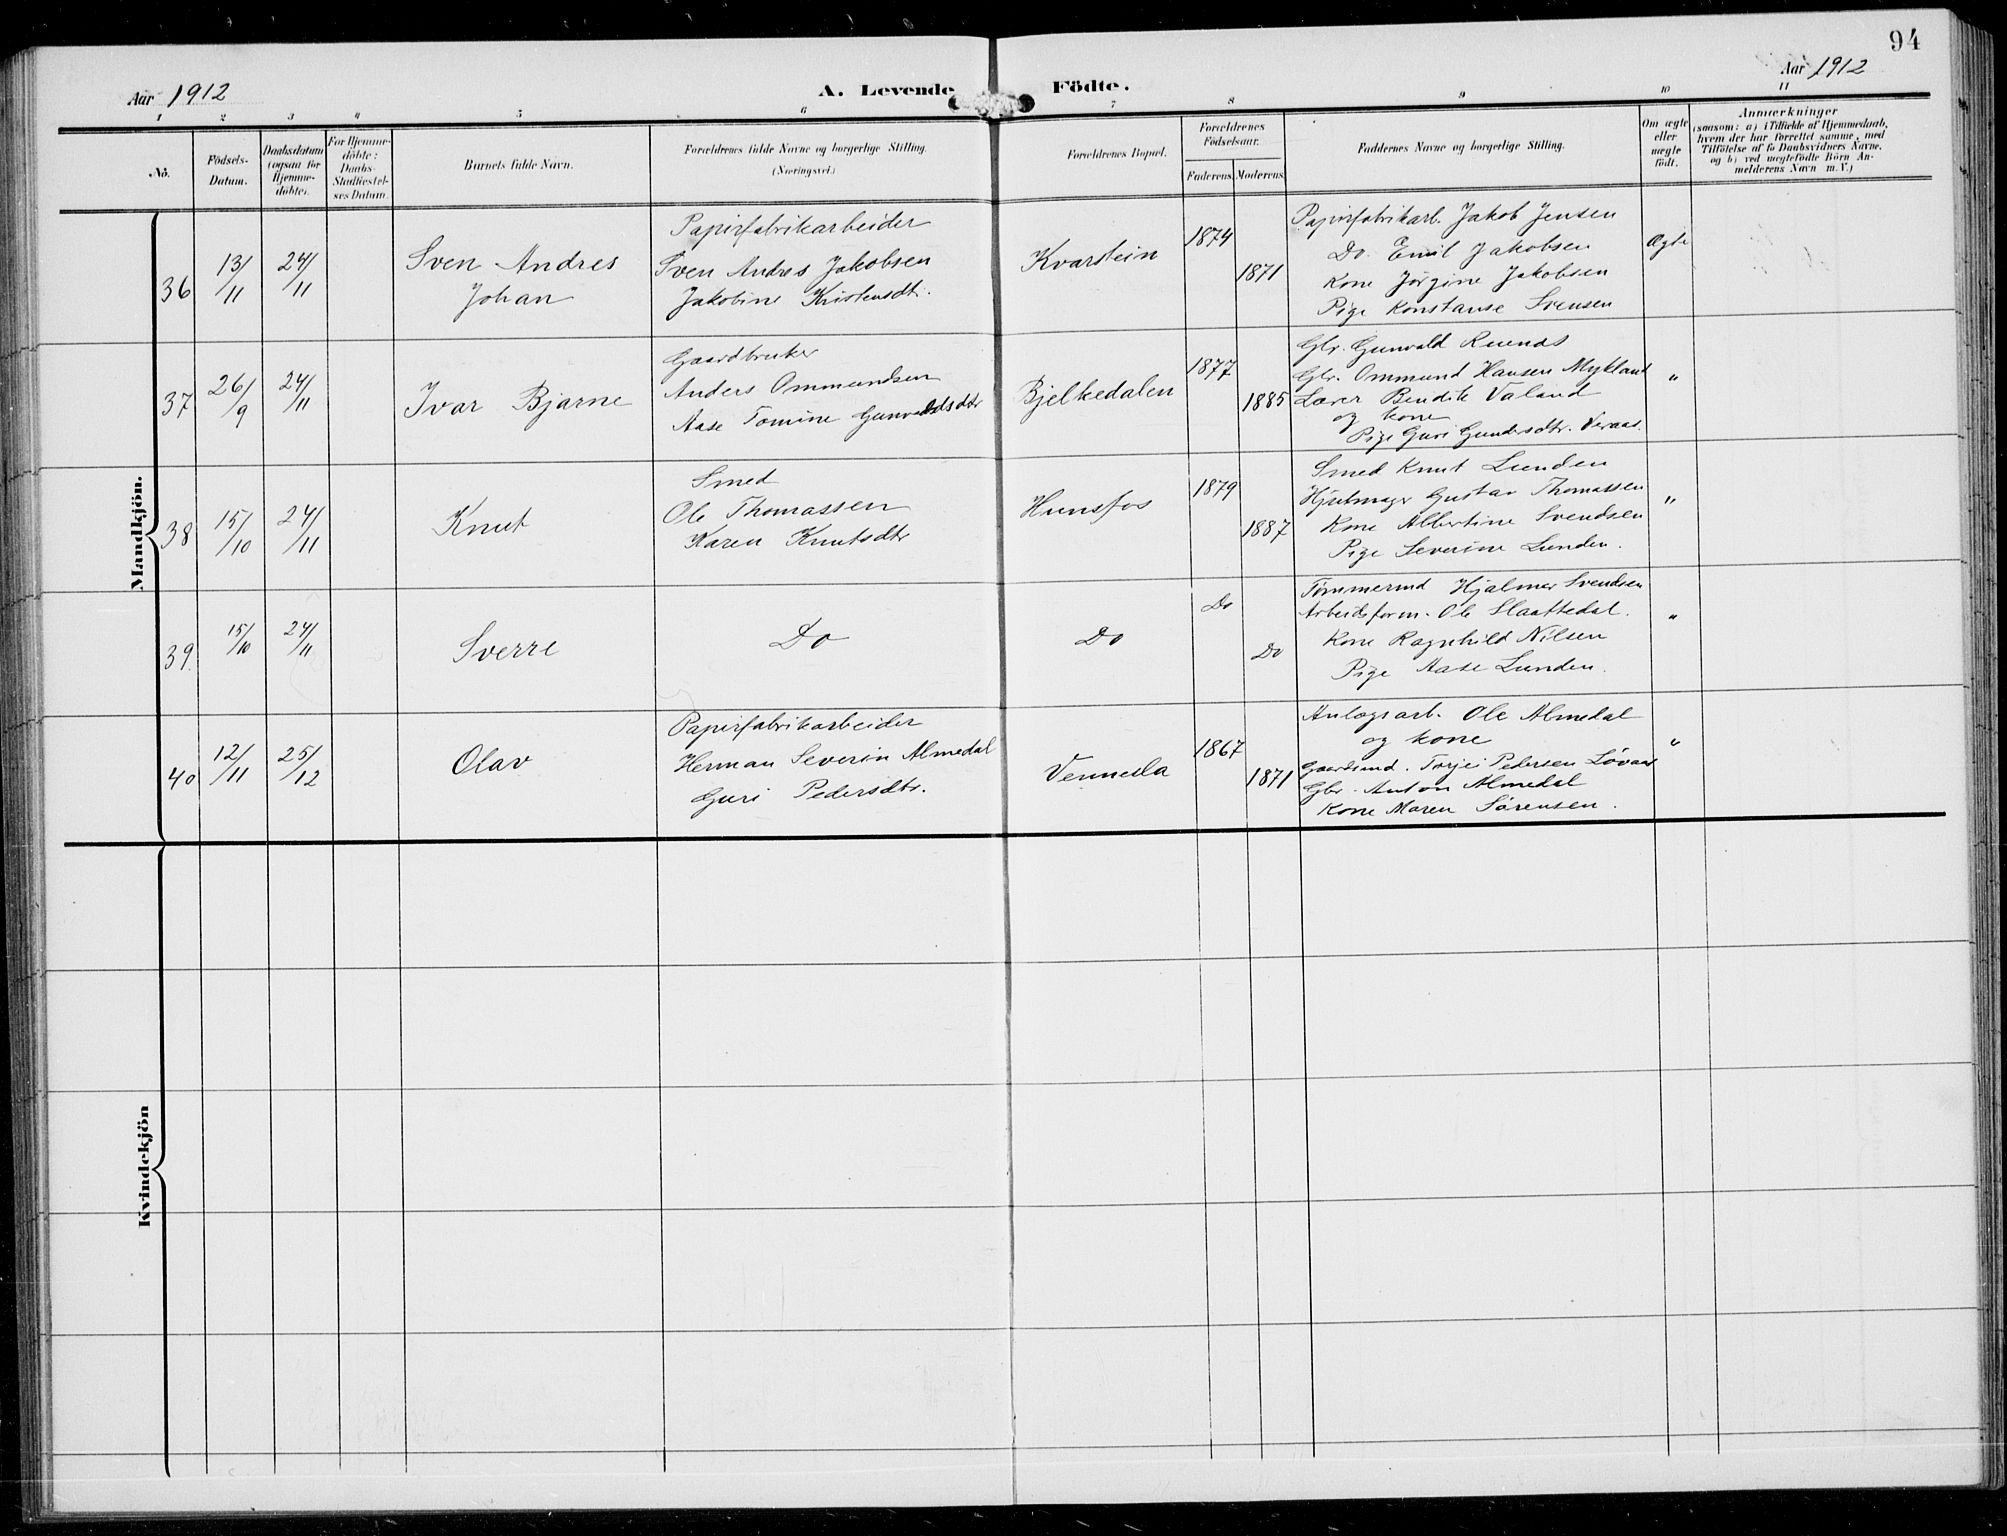 94
Aar 1912
A. Levende Födte.
Aar 1912
1 2 3 4 5 6 7 8 9 10 11
No.
Födsels-Datum.
Daabsdatum (ogsaa for Hjemme-döbte).
For Hjemme-döbte: Daabs-Stadfæstel-ses Datum.
Barnets fulde Navn.
Forældrenes fulde Navne og borgerlige Stilling.
(Næringsvei.)
Forældrenes Bopæl.
Forældrenes Födselsaar.
Faderens. Moderens.
Faddernes Navne og borgerlige Stilling.
Om ægte eller uægte födt.
Anmærkninger
(saasom: a) i Tilfælde af Hjemmedaab, hvem der har forrettet samme, med Tilföielse af to Daabsvidners Navne, og b) ved uægtefödte Börn An-melderens Navn m. V.)
Mandkjön.
36 13/11 24/11 Sven Andres Johan
Papirfabrikarbeider
Sven Andres Jakobsen
Jakobine Kristensdtr.
Kvarstein 1874 1871
Papirfabrikarb. Jakob Jensen
Do. Emil Jakobsen
Kone Jörgine Jakobsen
Pige Konstanse Svensen
Ægte
37 26/9 24/11 Ivar Bjarne
Gaardbruker
Anders Ommundsen
Aase Tomine Gunvaldsdtr
Bjelkedalen 1877 1885
Gbr. Gunvald
Gbr. Ommund Hansen Mykland
Lærer Bendik Valand
og kone
Pige Guri Gundersdtr. Veraas.
"
38 15/10 24/11 Knut
Smed
Ole Thomassen
Karen Knutsdtr
Hunsfos 1879 1887
Smed Knut Lunden
Hjulmager Gustav Thomassen
Kone Albertine Svendsen
Pige Severine Lunden.
"
39. 15/10 24/11 Sverre
Do
Do Do Do
Tömmermd Hjalmer Svendsen
Arbeidsform. Ole Slaattedal.
Kone Ragnhild Nilsen
Pige Aase Lunden.
"
40 12/11 25/12 Olav
Papirfabrikarbeider
Herman Severin Almedal
Guri Pedersdtr.
Vennesla 1867 1871
Anlægsarb. Ole Almedal
og kone
Gaardmd. Torjei Pedersen Lövaas
Gbr. Anton Almedal
Kone Maren Sörensen.
"
Kvindekjön